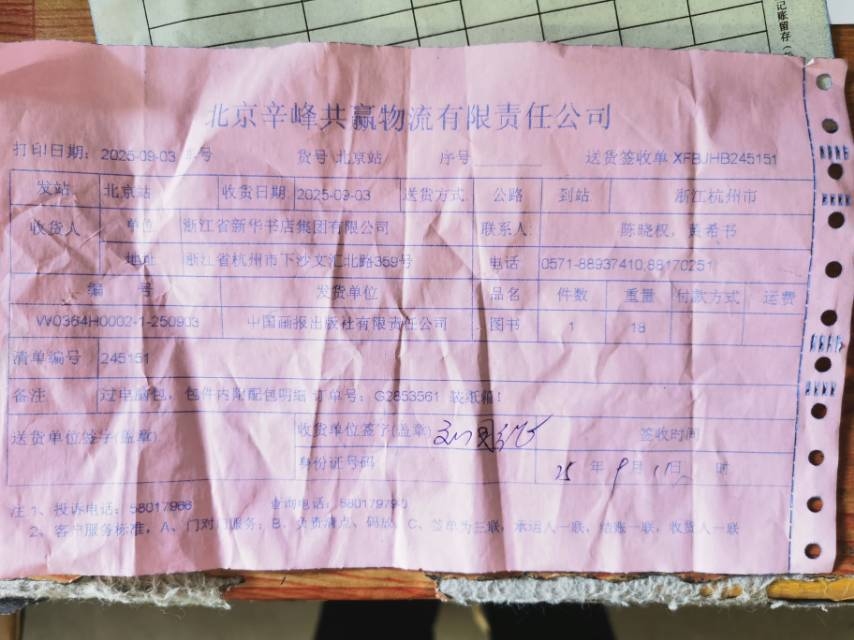 记账留存
北京辛峰共赢物流有限责任公司
打印日期: 2025-09-03 号 货号 北京站 序号 送货签收单 XFBJHB245151
发站 北京站 收货日期 2025-09-03 送货方式 公路 到站 浙江杭州市
收货人 单位 浙江省新华书店集团有限公司 联系人 陈晓权, 黄希书
地址 浙江省杭州市下沙文汇北路359号 电话 0571-88937410,88170251
编号 发货单位 品名 件数 重量 付款方式 运费
W0364H0002-1-250903 中国画报出版社有限责任公司 图书 1 18
清单编号 245151
备注 过电脑包, 包件内附配包明细 订单号: G2853561 装纸箱!
送货单位签字(盖章) 收货单位签字(盖章) 签收时间
身份证号码 25 年 9 月 11 日 时
注 1、投诉电话: 58017988 查询电话: 58017979-0
2、客户服务标准, A、门对门服务; B、负责清点、码放, C、签单为三联, 承运人一联, 结账一联, 收货人一联